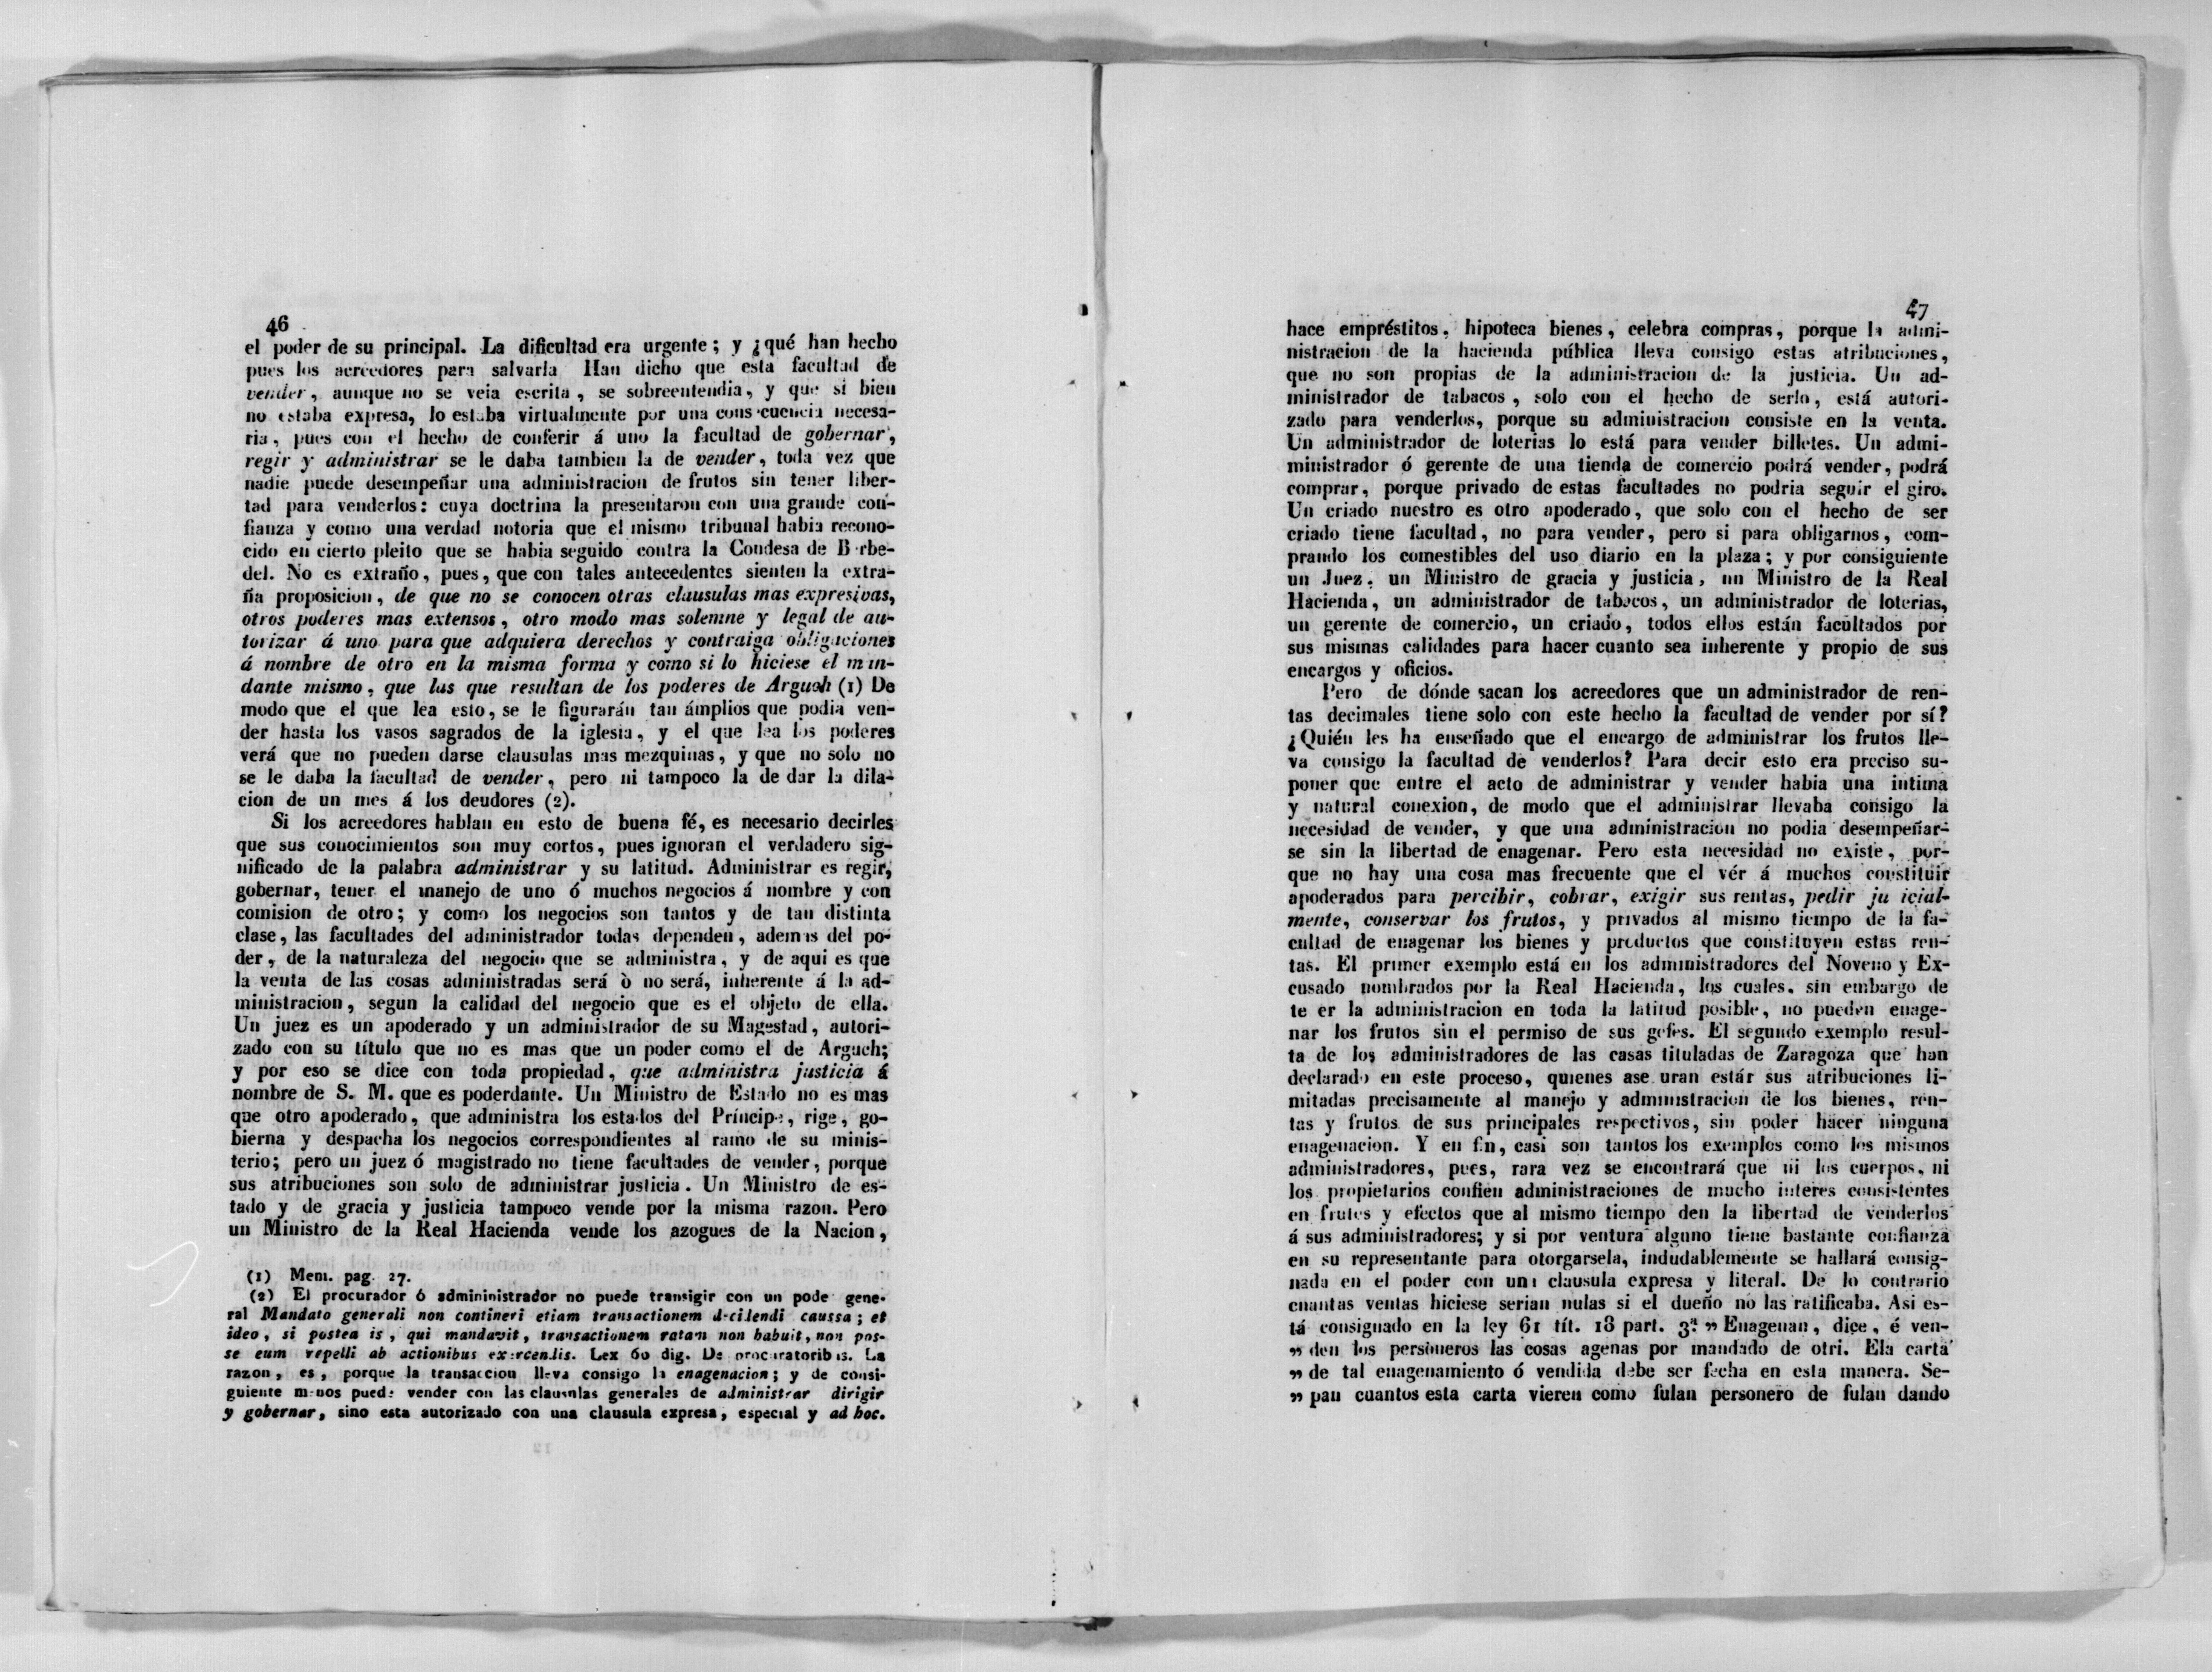 46
el poder de su principal. La dificultad era urgente; y ¿qué han hecho
pues los acreedores para salvarla Han dicho que esta facultad de
vender, aunque no se veia escrita, se sobreentendia, y que si bien
no estaba expresa, lo estaba virtualmente por una consecuencia necesa-
ria, pues con el hecho de conferir á uno la facultad de gobernar,
regir y administrar se le daba tambien la de vender, toda vez que
nadie puede desempeñar una administracion de frutos sin tener liber-
tad para venderlos: cuya doctrina la presentaron con una grande con-
fianza y como una verdad notoria que el mismo tribunal habia recono-
cido en cierto pleito que se habia seguido contra la Condesa de Berbe-
del. No es extraño, pues, que con tales antecedentes sienten la extra-
ña proposicion, de que no se conocen otras clausulas mas expresivas,
otros poderes mas extensos, otro modo mas solemne y legal de au-
torizar á uno para que adquiera derechos y contraiga obligaciones
á nombre de otro en la misma forma y como si lo hiciese el man-
dante mismo, que las que resultan de los poderes de Arguch (1) De
modo que el que lea esto, se le figurarán tan ámplios que podia ven-
der hasta los vasos sagrados de la iglesia, y el que lea los poderes
verá que no pueden darse clausulas mas mezquinas, y que no solo no
se le daba la facultad de vender, pero ni tampoco la de dar la dila-
cion de un mes á los deudores (2).
Si los acreedores hablan en esto de buena fé, es necesario decirles
que sus conocimientos son muy cortos, pues ignoran el verdadero sig-
nificado de la palabra administrar y su latitud. Administrar es regir,
gobernar, tener el manejo de uno ó muchos negocios á nombre y con
comision de otro; y como los negocios son tantos y de tan distinta
clase, las facultades del administrador todas dependen, ademas del po-
der, de la naturaleza del negocio que se administra, y de aqui es que
la venta de las cosas administradas será ò no será, inherente á la ad-
ministracion, segun la calidad del negocio que es el objeto de ella.
Un juez es un apoderado y un administrador de su Magestad, autori-
zado con su título que no es mas que un poder como el de Arguch;
y por eso se dice con toda propiedad, que administra justicia á
nombre de S. M. que es poderdante. Un Ministro de Estado no es mas
que otro apoderado, que administra los estados del Príncipe, rige, go-
bierna y despacha los negocios correspondientes al ramo de su minis-
terio; pero un juez ó magistrado no tiene facultades de vender, porque
sus atribuciones son solo de administrar justicia. Un Ministro de es-
tado y de gracia y justicia tampoco vende por la misma razon. Pero
un Ministro de la Real Hacienda vende los azogues de la Nacion,
(1) Mem. pag. 27.
(2) El procurador ó admininistrador no puede transigir con un pode gene-
ral Mandato generali non contineri etiam transactionem decidendi caussa; et
ideo, si postea is, qui mandavit, transactionem ratam non habuit, non pos-
se eum repelli ab actionibus exercendis. Lex 60 dig. De procuratoribus. La
razon, es, porque la transaccion lleva consigo la enagenacion; y de consi-
guiente menos puede vender con las clausulas generales de administrar dirigir
y gobernar, sino esta autorizado con una clausula expresa, especial y ad hoc.
47
hace empréstitos, hipoteca bienes, celebra compras, porque la admi-
nistracion de la hacienda pública lleva consigo estas atribuciones,
que no son propias de la administracion de la justicia. Un ad-
ministrador de tabacos, solo con el hecho de serlo, está autori-
zado para venderlos, porque su administracion consiste en la venta.
Un administrador de loterias lo está para vender billetes. Un admi-
ministrador ó gerente de una tienda de comercio podrá vender, podrá
comprar, porque privado de estas facultades no podria seguir el giro.
Un criado nuestro es otro apoderado, que solo con el hecho de ser
criado tiene facultad, no para vender, pero si para obligarnos, com-
prando los comestibles del uso diario en la plaza; y por consiguiente
un Juez, un Ministro de gracia y justicia, un Ministro de la Real
Hacienda, un administrador de tabacos, un administrador de loterias,
un gerente de comercio, un criado, todos ellos están facultados por
sus mismas calidades para hacer cuanto sea inherente y propio de sus
encargos y oficios.
Pero de dónde sacan los acreedores que un administrador de ren-
tas decimales tiene solo con este hecho la facultad de vender por sí?
¿Quién les ha enseñado que el encargo de administrar los frutos lle-
va consigo la facultad de venderlos? Para decir esto era preciso su-
poner que entre el acto de administrar y vender habia una intima
y natural conexion, de modo que el administrar llevaba consigo la
necesidad de vender, y que una administracion no podia desempeñar-
se sin la libertad de enagenar. Pero esta necesidad no existe, por-
que no hay una cosa mas frecuente que el vér á muchos constituir
apoderados para percibir, cobrar, exigir sus rentas, pedir judicial-
mente, conservar los frutos, y privados al mismo tiempo de la fa-
cultad de enagenar los bienes y productos que constituyen estas ren-
tas. El primer exemplo está en los administradores del Noveno y Ex-
cusado nombrados por la Real Hacienda, los cuales, sin embargo de
tener la administracion en toda la latitud posible, no pueden enage-
nar los frutos sin el permiso de sus gefes. El segundo exemplo resul-
ta de los administradores de las casas tituladas de Zaragoza que han
declarado en este proceso, quienes aseguran estár sus atribuciones li-
mitadas precisamente al manejo y administracion de los bienes, ren-
tas y frutos de sus principales respectivos, sin poder hacer ninguna
enagenacion. Y en fin, casi son tantos los exemplos como los mismos
administradores, pues, rara vez se encontrará que ni los cuerpos, ni
los propietarios confien administraciones de mucho interes consistentes
en frutos y efectos que al mismo tiempo den la libertad de venderlos
á sus administradores; y si por ventura alguno tiene bastante confianza
en su representante para otorgarsela, indudablemente se hallará consig-
nada en el poder con una clausula expresa y literal. De lo contrario
cuantas ventas hiciese serian nulas si el dueño no las ratificaba. Asi es-
tá consignado en la ley 61 tít. 18 part. 3.ª „ Enagenan, dice, é ven-
„ den los personeros las cosas agenas por mandado de otri. Ela carta
„ de tal enagenamiento ó vendida debe ser fecha en esta manera. Se-
„ pan cuantos esta carta vieren como fulan personero de fulan dando